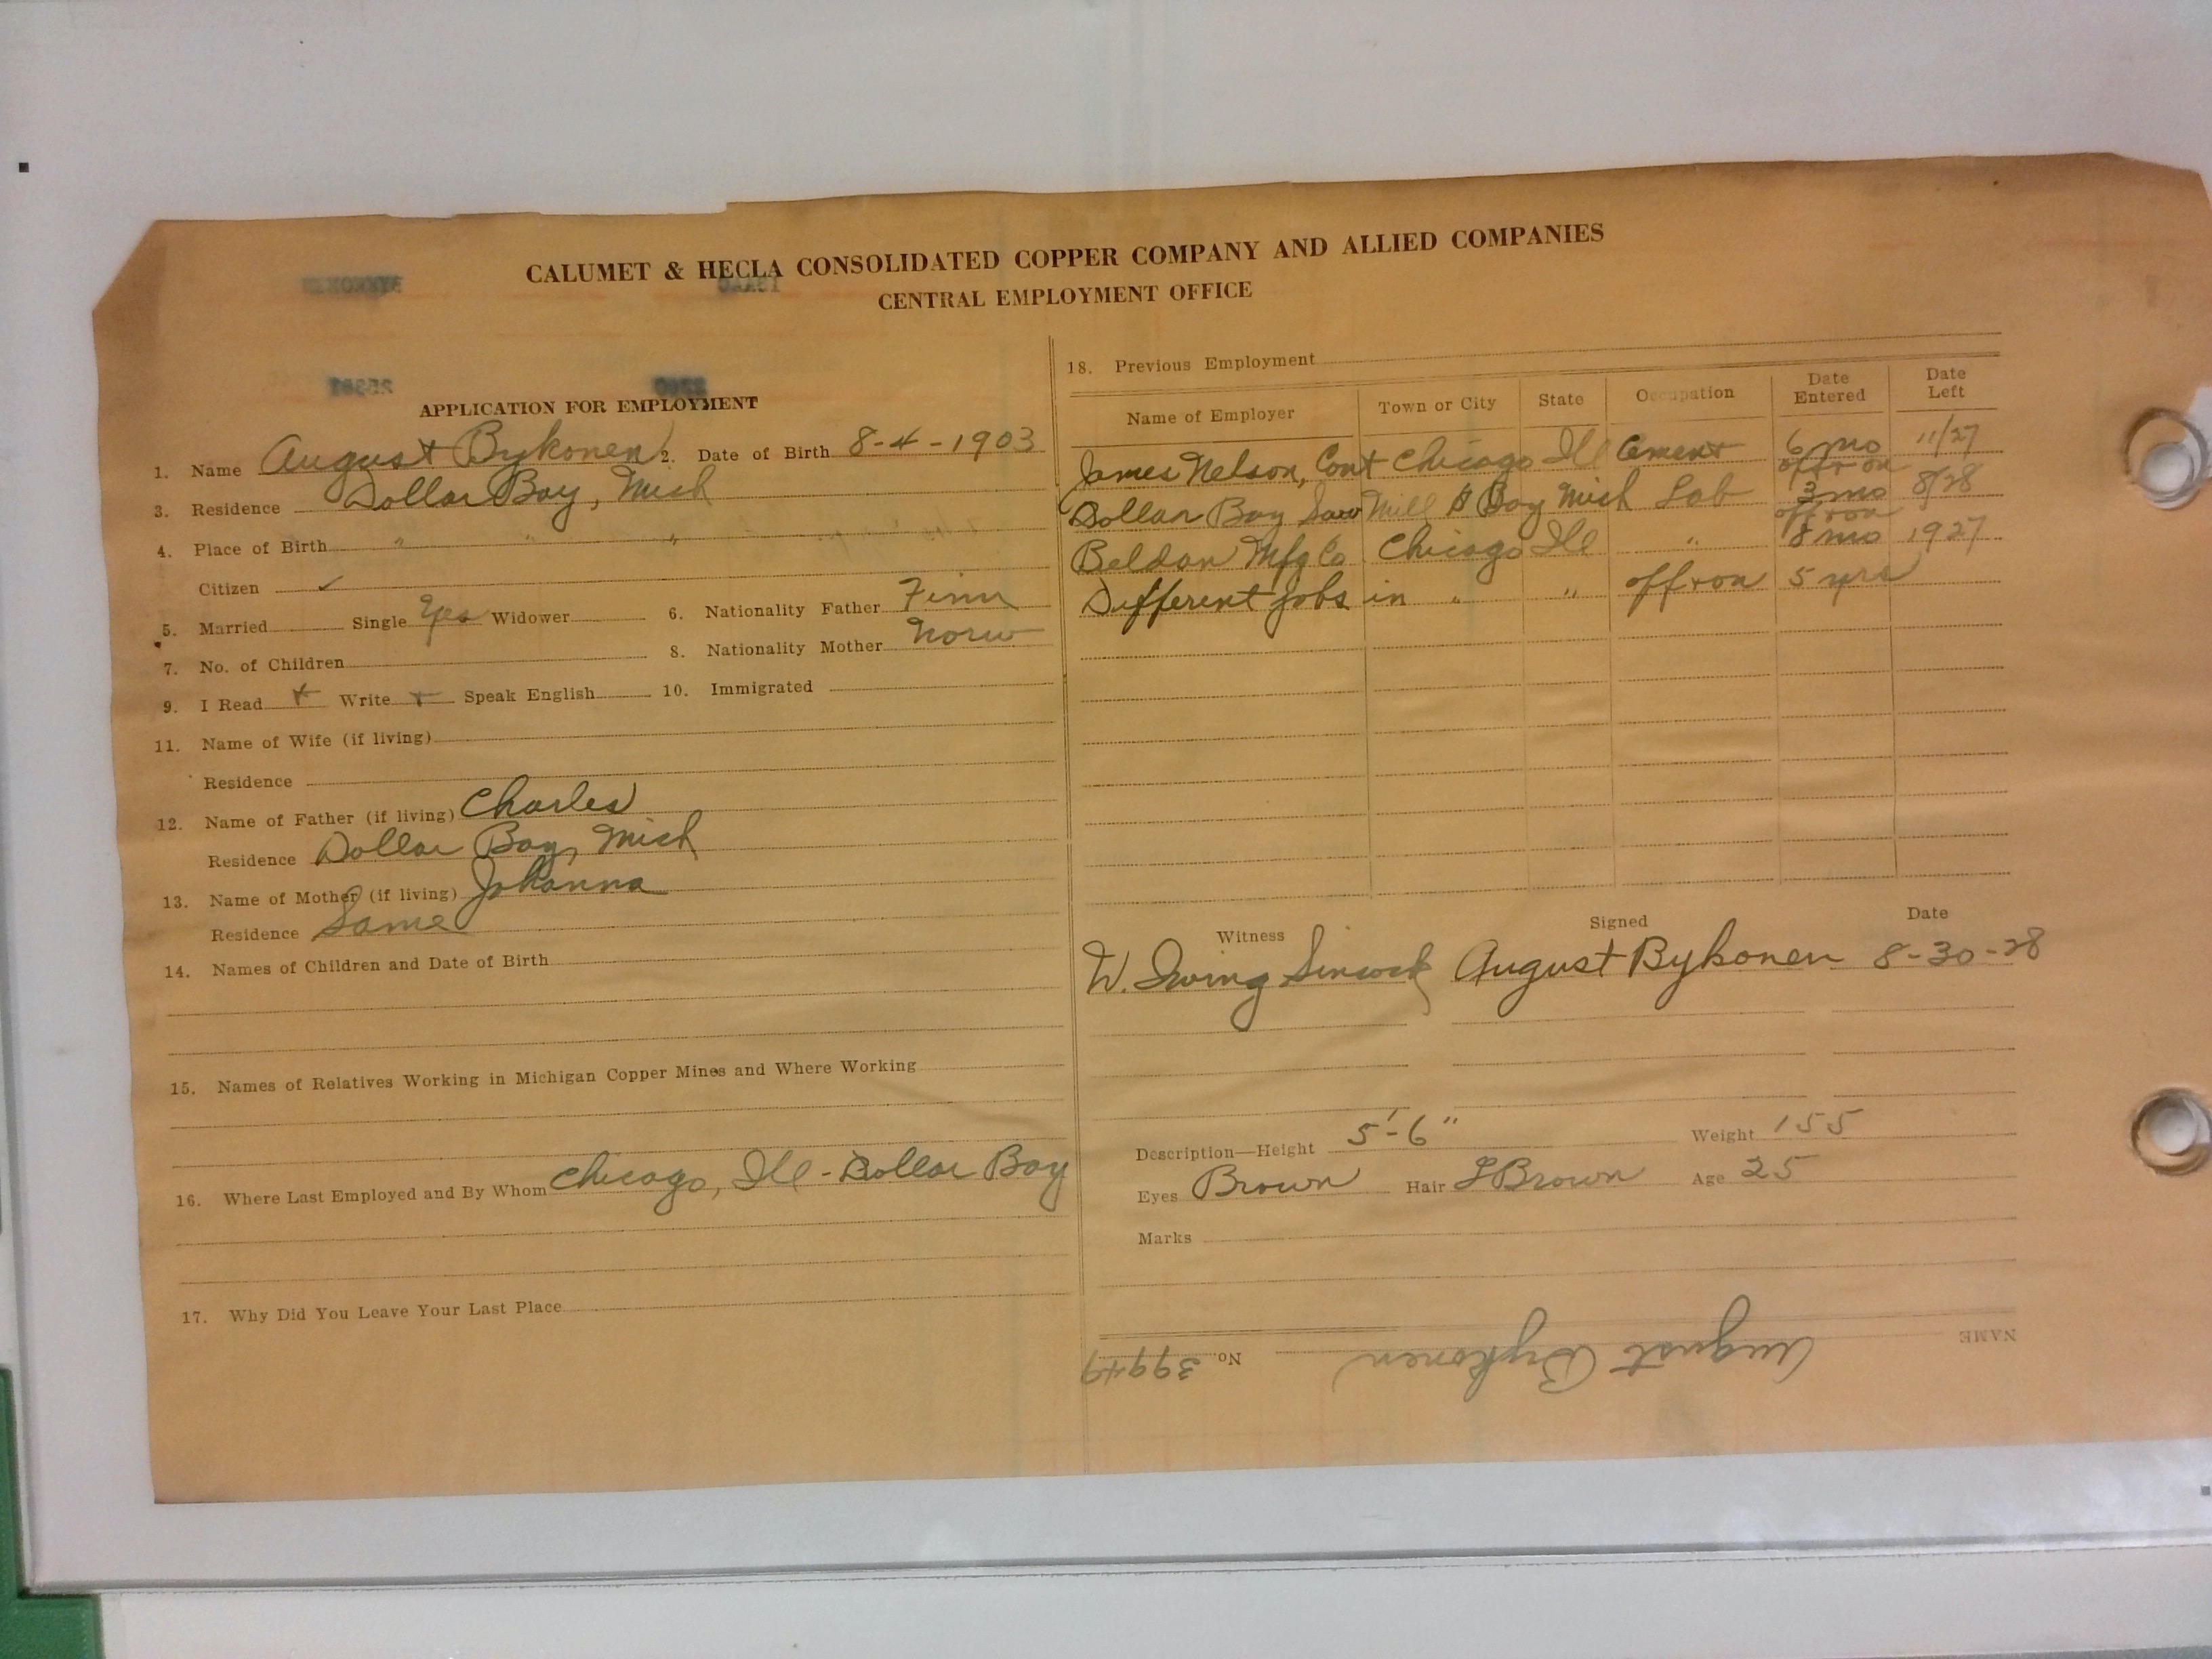 CALUMET & HECLA CONSOLIDATED COPPER COMPANY AND ALLIED COMPANIES
CENTRAL EMPLOYMENT OFFICE
APPLICATION FOR EMPLOYMENT
1. Name August Bykonen 2. Date of Birth 8-4-1903
3. Residence Dollar Bay, Mich
4. Place of Birth " " "
Citizen ✓
5. Married Single Yes Widower 6. Nationality Father Finn
7. No. of Children 8. Nationality Mother Norw
9. I Read + Write + Speak English 10. Immigrated
11. Name of Wife (if living)
Residence
12. Name of Father (if living) Charles
Residence Dollar Bay, Mich
13. Name of Mother (if living) Johanna
Residence Same
14. Names of Children and Date of Birth
15. Names of Relatives Working in Michigan Copper Mines and Where Working
16. Where Last Employed and By Whom Chicago, Ill - Dollar Bay
17. Why Did You Leave Your Last Place
18. Previous Employment
Name of Employer Town or City State Occupation Date Entered Date Left
James Nelson, Cont Chicago Ill Cement 6 mo 11/27
off + on
Dollar Bay Saw Mill D Bay Mich Lab 3 mo 8/28
off + on
Beldon Mfg Co Chicago Ill " 8 mo 1927
Different jobs in " " off + on 5 yrs
Witness Signed Date
W. Irving Sincock August Bykonen 8-30-28
Description—Height 5'-6" Weight 155
Eyes Brown Hair L Brown Age 25
Marks
NAME August Bykonen No. 39949